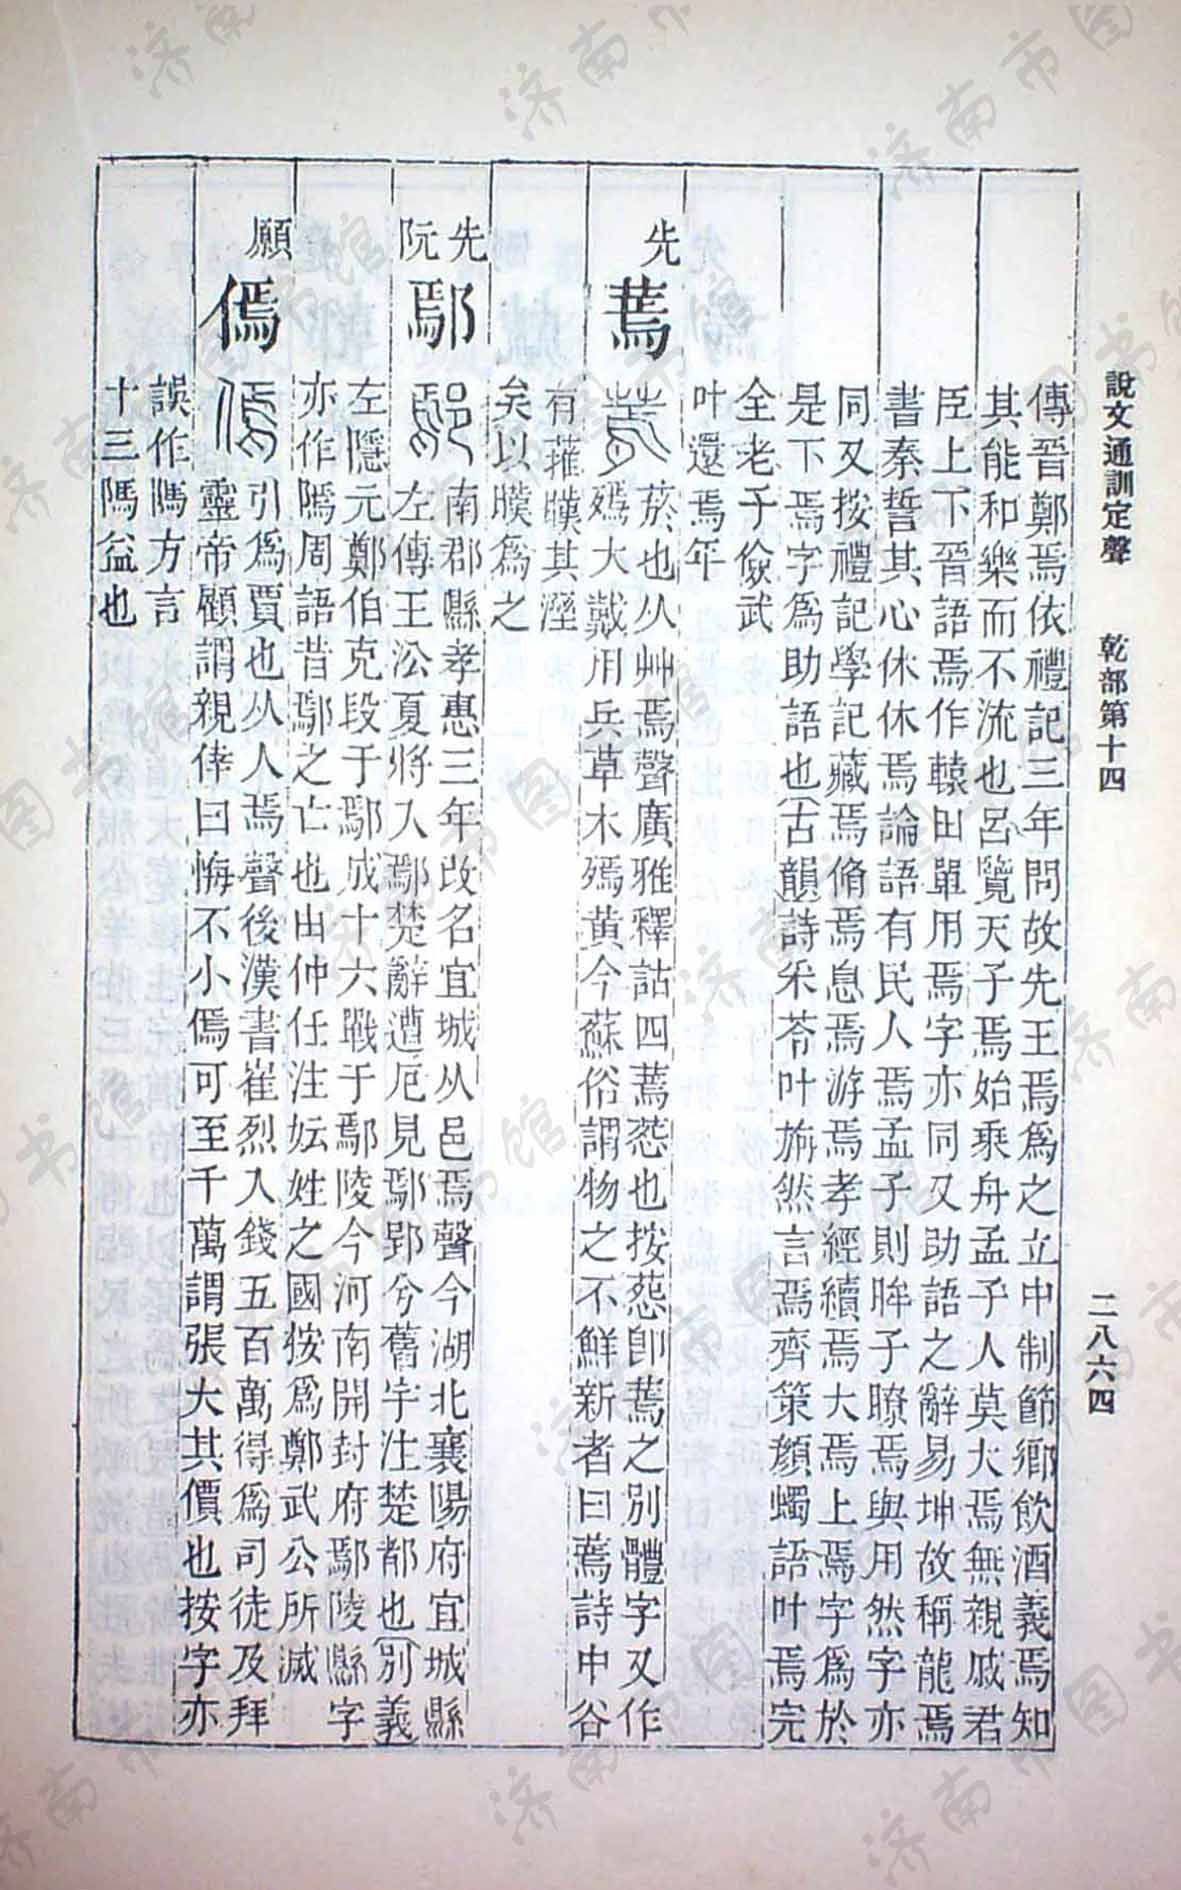 說文通訓定聲 乾部第十四 二八六四
傳晉鄭焉依禮記三年問故先王焉為之立中制節鄉飲酒義焉知
其能和樂而不流也呂覽天子焉始乘舟孟子人莫大焉無親戚君
臣上下晉語焉作轅田單用焉字亦同又助語之辭易坤故稱龍焉
書秦誓其心休休焉論語有民人焉孟子則眸子瞭焉與用然字亦
同又按禮記學記藏焉脩焉息焉游焉孝經續焉大焉上焉字為於
是下焉字為助語也(古韻)詩采苓叶旃然言焉齊策顏蠋語叶焉完
全老子儉武
叶還焉年
先
蔫
菸也从艸焉聲廣雅釋詁四蔫菸也按菸卽蔫之別體字又作
嫣大戴用兵草木嫣黃今蘇俗謂物之不鮮新者曰蔫詩中谷
有蓷暵其溼
矣以暵為之
先阮
鄢
南郡縣孝惠三年改名宜城从邑焉聲今湖北襄陽府宜城縣
左傳王㳂夏將入鄢楚辭遭厄見鄢郢兮舊宇注楚都也(別義)
左隱元鄭伯克段于鄢成十六戰于鄢陵今河南開封府鄢陵縣字
亦作隱周語昔鄢之亡也由仲任注妘姓之國按為鄭武公所滅
願
傿
引為賈也从人焉聲後漢書崔烈入錢五百萬得為司徒及拜
靈帝顧謂親倖曰悔不小傿可至千萬謂張大其價也按字亦
誤作隱方言
十三隱益也